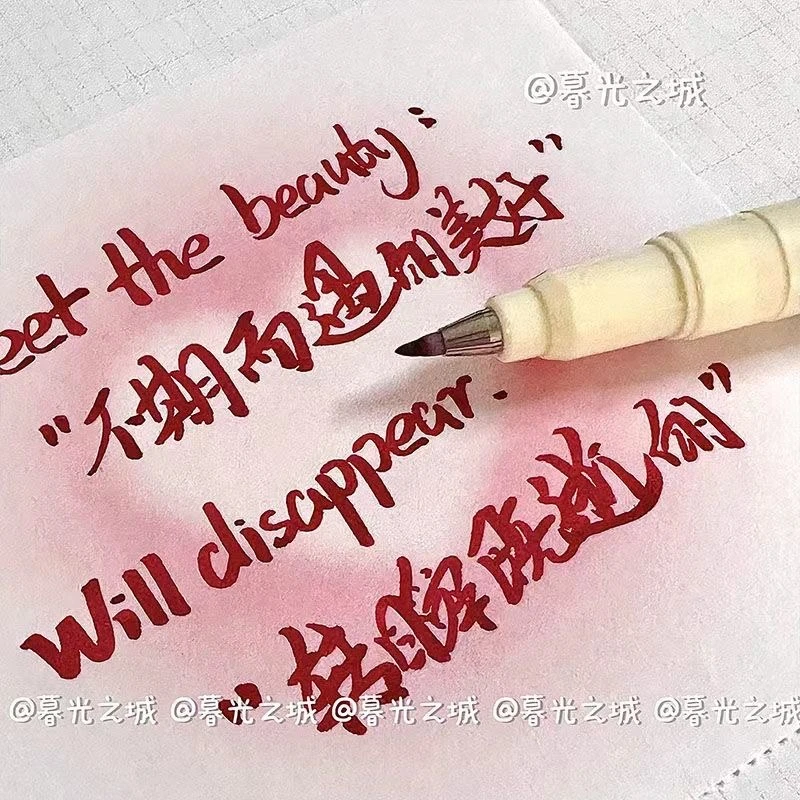 @暮光之城
meet the beauty:
"不期而遇的美好"
Will disappear.
"转瞬既逝的"
@暮光之城 @暮光之城 @暮光之城 @暮光之城 @暮光之城